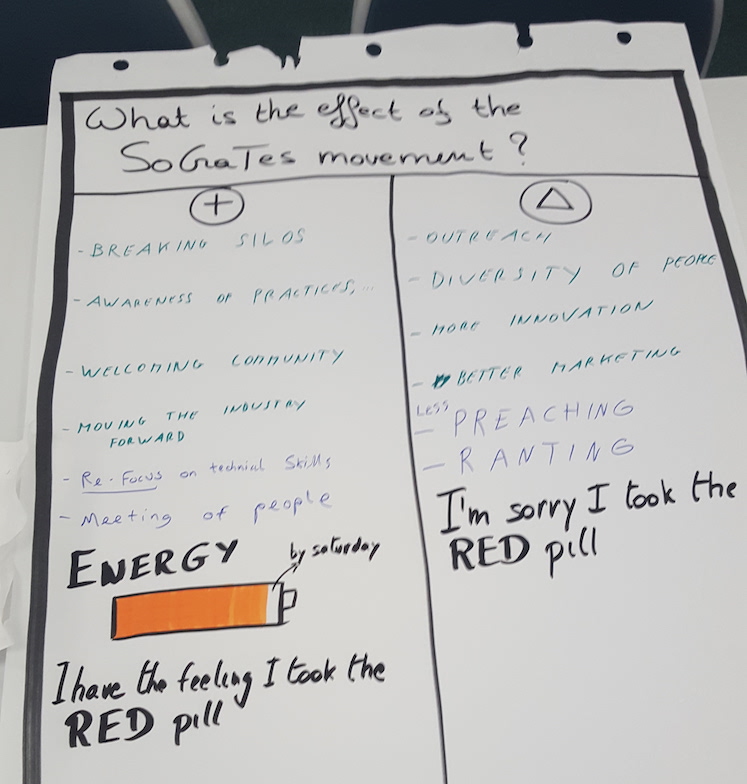 What is the effect of the
SoCraTes movement?
+
- BREAKING SILOS
- AWARENESS OF PRACTICES,...
- WELCOMING COMMUNITY
- MOVING THE INDUSTRY
FORWARD
- Re-Focus on technical Skills
- Meeting of people
ENERGY
by saturday
I have the feeling I took the
RED pill
Δ
- OUTREACH
- DIVERSITY OF PEOPLE
- MORE INNOVATION
- BETTER MARKETING
LESS
- PREACHING
- RANTING
I'm sorry I took the
RED pill